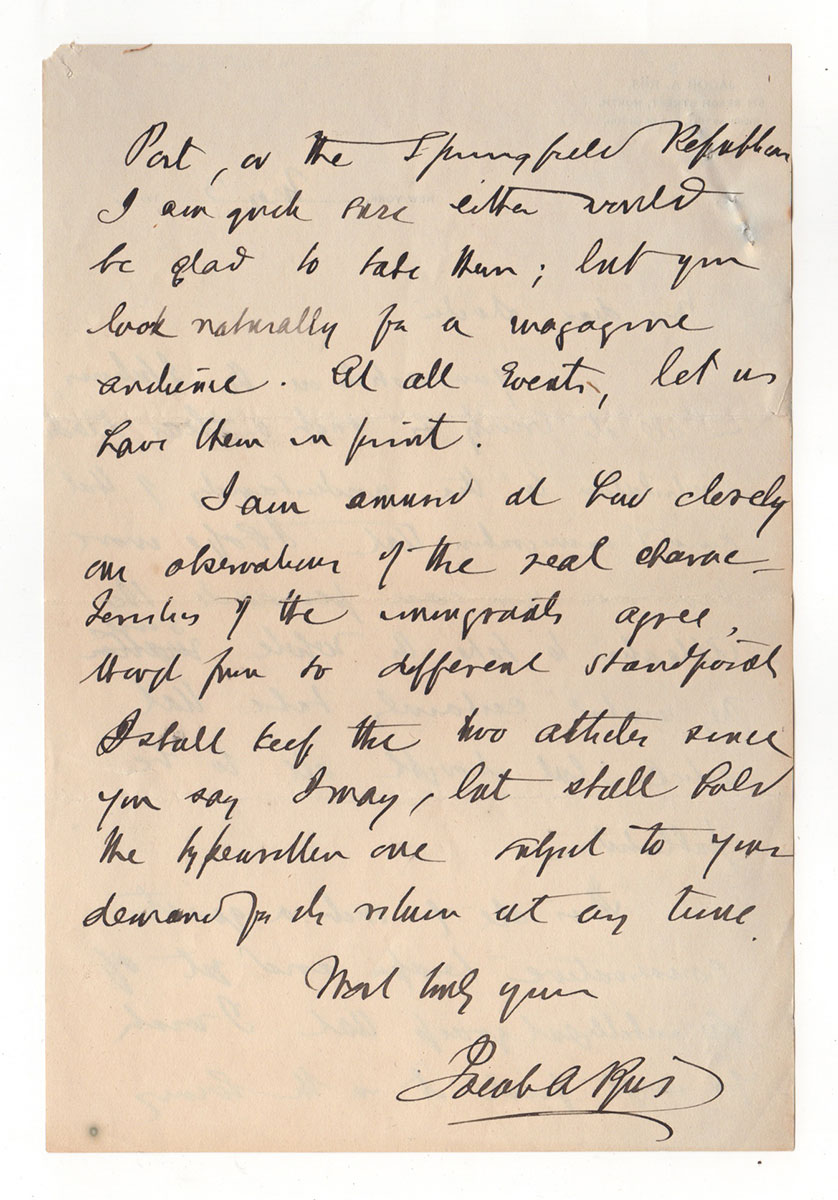 Post, or the Springfield Republican
I am quite sure either would
be glad to take them; but you
look naturally for a magazine
audience. At all Events, let us
have them in print.
I am amused at how closely
our observations of the real charac-
teristics of the immigrants agree,
though from so different standpoints
I shall keep the two articles since
you say I may, but shall hold
the typewritten one subject to your
demand for its return at any time.
Most truly yours
Jacob A Riis